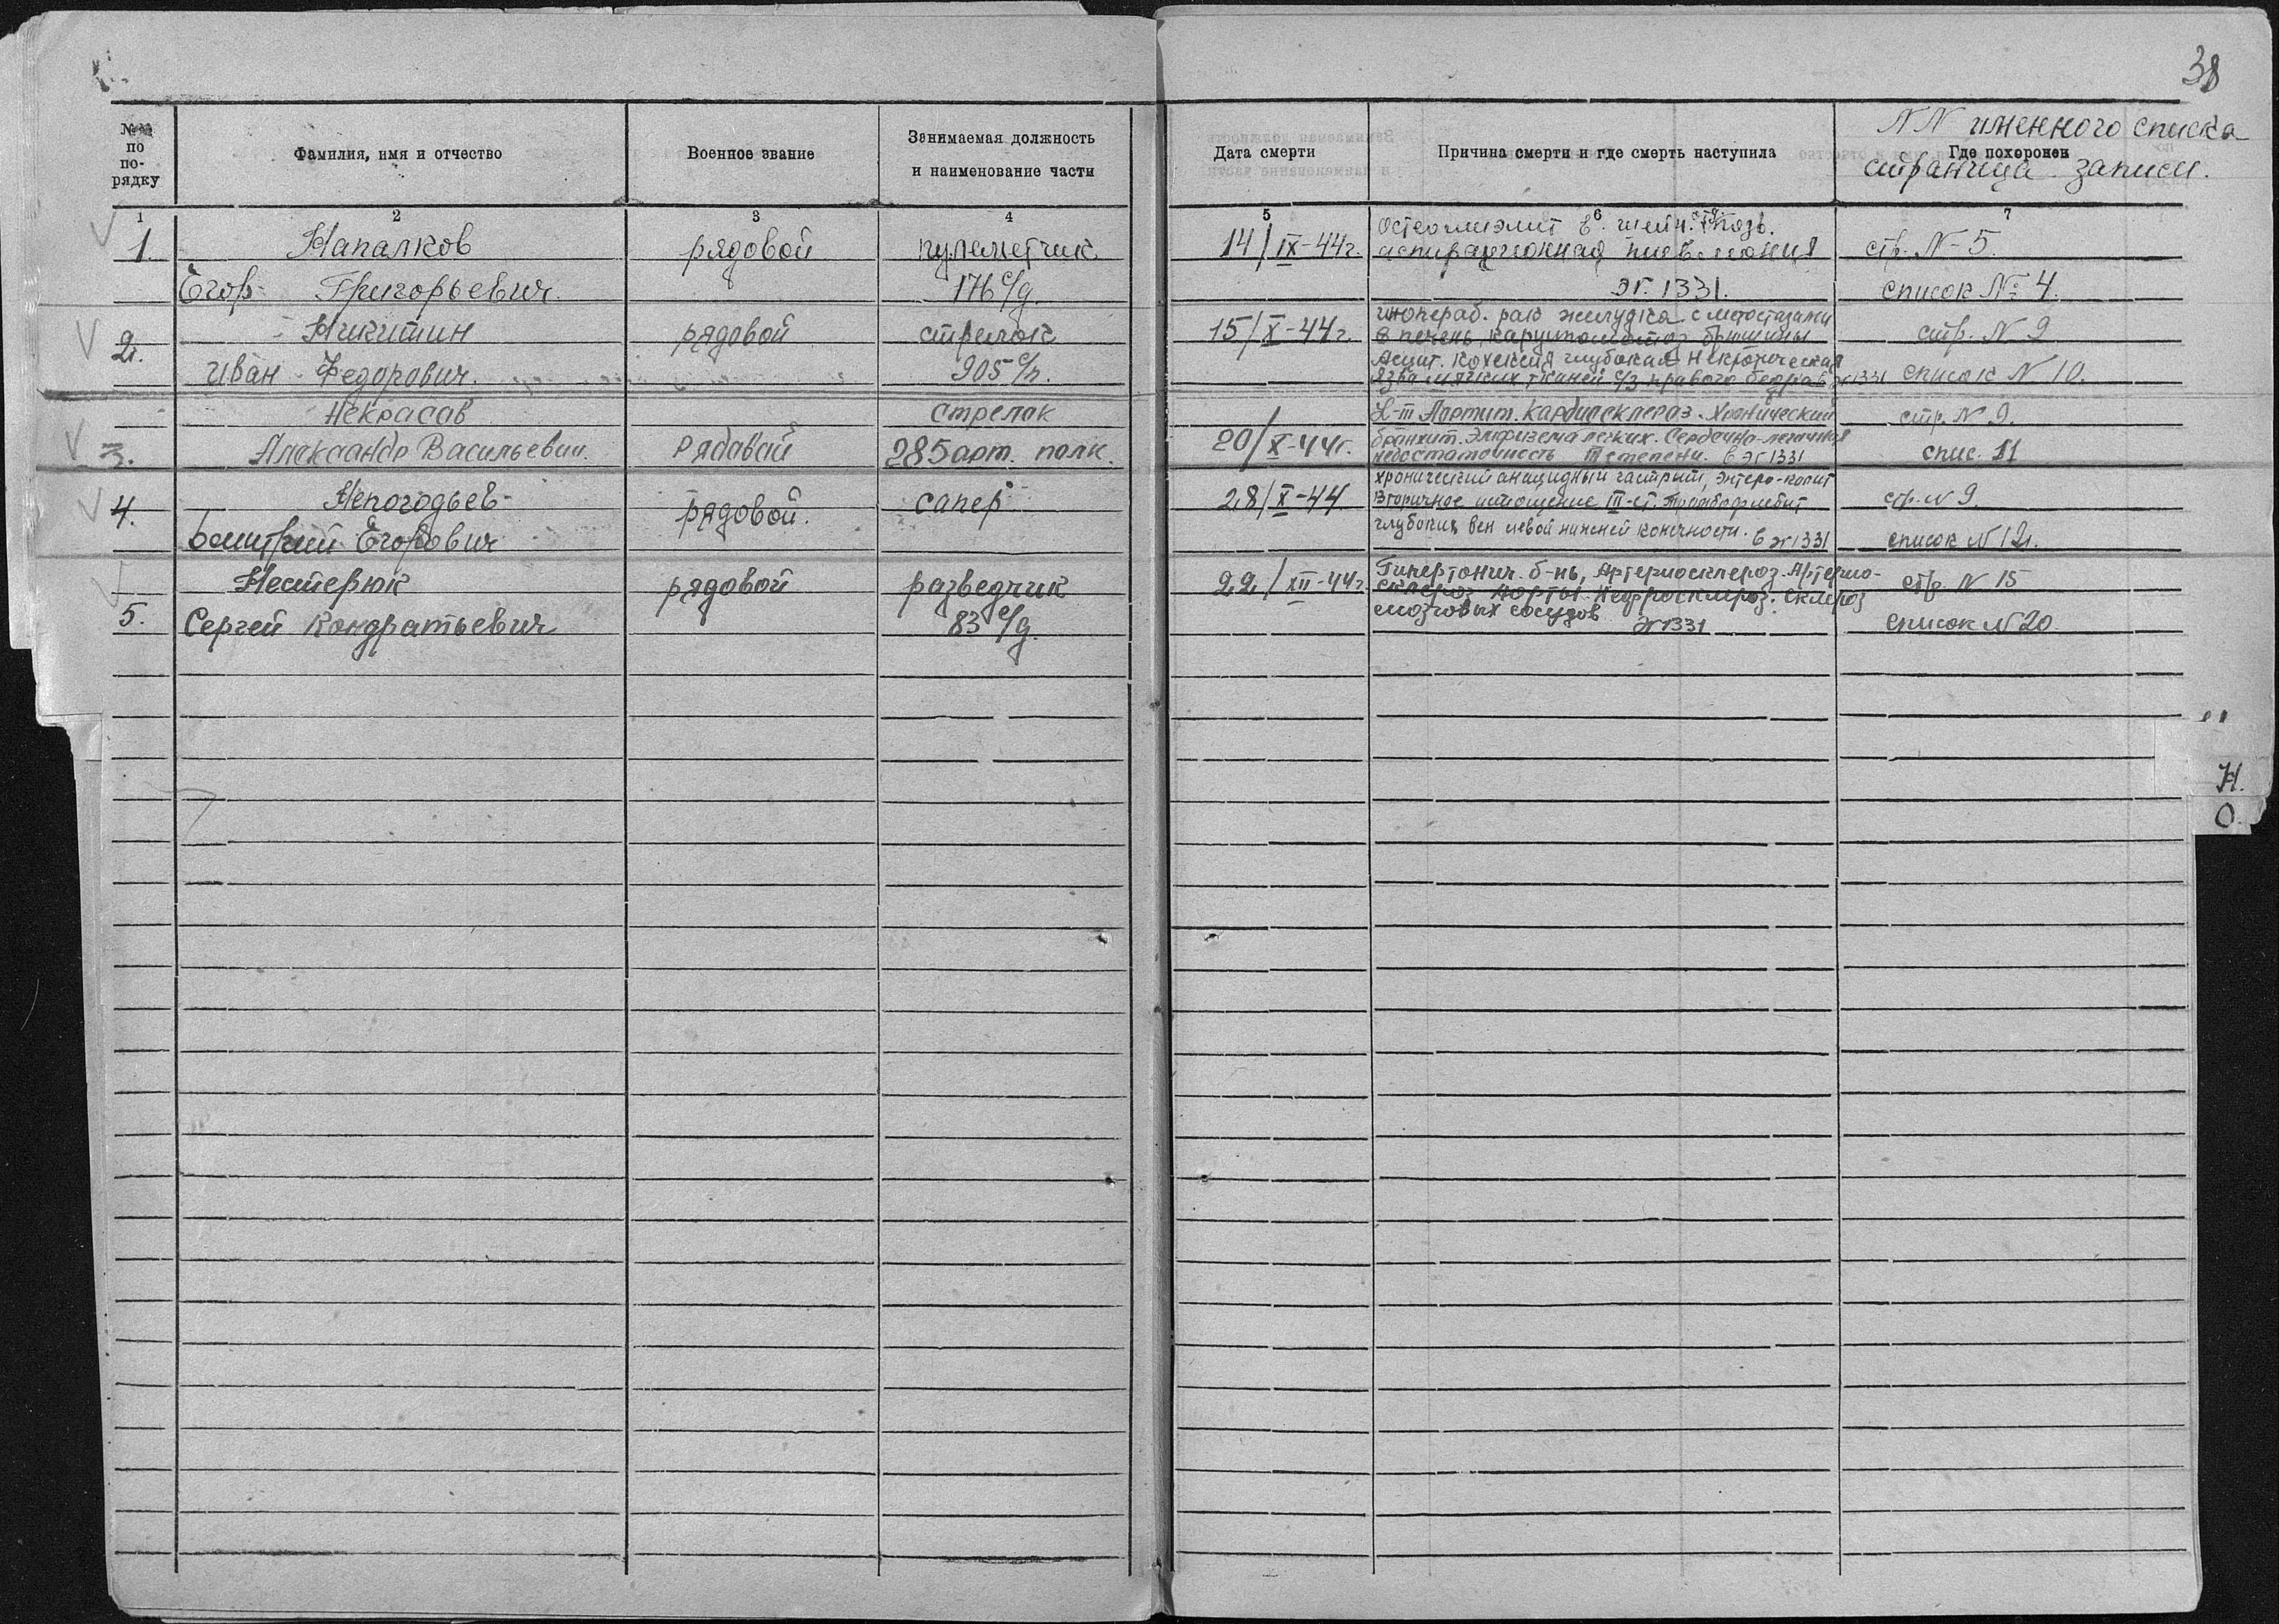 38
№№ по по- рядку
Фамилия, имя и отчество
Военное звание
Занимаемая должность
и наименование части
Дата смерти
Причина смерти и где смерть наступила
NN именного списка
Где похоронен
страница записи.
1 2 3 4 5 6 7
1. Напалков рядовой пулеметчик 14/IX-44г.
Егор Григорьевич 176 с/д.
аспирационная пневмония
эг. 1331.
стр. N-5
список № 4.
2. Никитин рядовой стрелок 15/X-44г.
Иван Федорович. 905 с/п.
иноператб. рак желудка с метостазами
в печень, брюшины
Асцит. Кохексия глубокая Некротическая
язва мягких тканей с/з правого бедра в эг 1331
стр. N 9
список N 10.
Некрасов стрелок
3. Александр Васильевич. Рядавой 285 арт. полк. 20/X-44г.
Аортит. Кардиосклероз. Хронический
бронхит. Эмфизема легких. Сердечно-легочная
недостаточность III степени. в эг 1331
стр. N 9.
спис. 11
4. Непогодьев рядовой. сапер 28/X-44
Дмитрий Егорович
хронический анацидный гастрит, энтеро-колит
Вторичное истощение III-ст. Тромбофлебит
глубоких вен левой нижней конечности. в эг 1331
стр. N 9.
список N 12.
Нестерюк рядовой разведчик 22/XII-44г.
5. Сергей Кондратьевич 83 с/д.
Гипертонич. б-нь, Артериосклероз. Артерио-
склероз Аорты. Нефросклероз. Склероз
мозговых сосудов
эг 1331
стр. N 15
список N 20.
Н.
О.